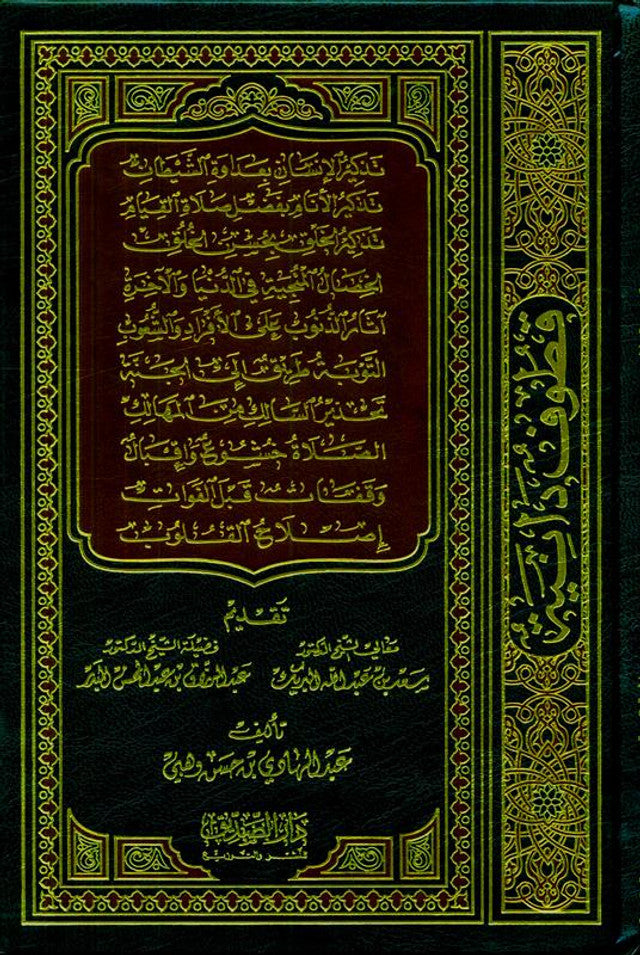 تذكير الإنسان بعداوة الشيطان
تذكير الأنام بفضل صلاة القيام
تذكير الخلق بحسن الخلق
الخصال المنجية في الدنيا والآخرة
آثار الذنوب على الأفراد والشعوب
التوبة طريق إلى الجنة
تحذير السالك من المهالك
الصلاة خشوع وإقبال
وقفات قبل الفوات
إصلاح القلوب
تقديم
معالي الشيخ الدكتور
سعد بن عبد الله البريك
فضيلة الشيخ الدكتور
عبد الرزاق بن عبد المحسن البدر
تأليف
عبد الهادي بن حسن وهبي
دار الصديق
للنشر والتوزيع
قطوف دانية